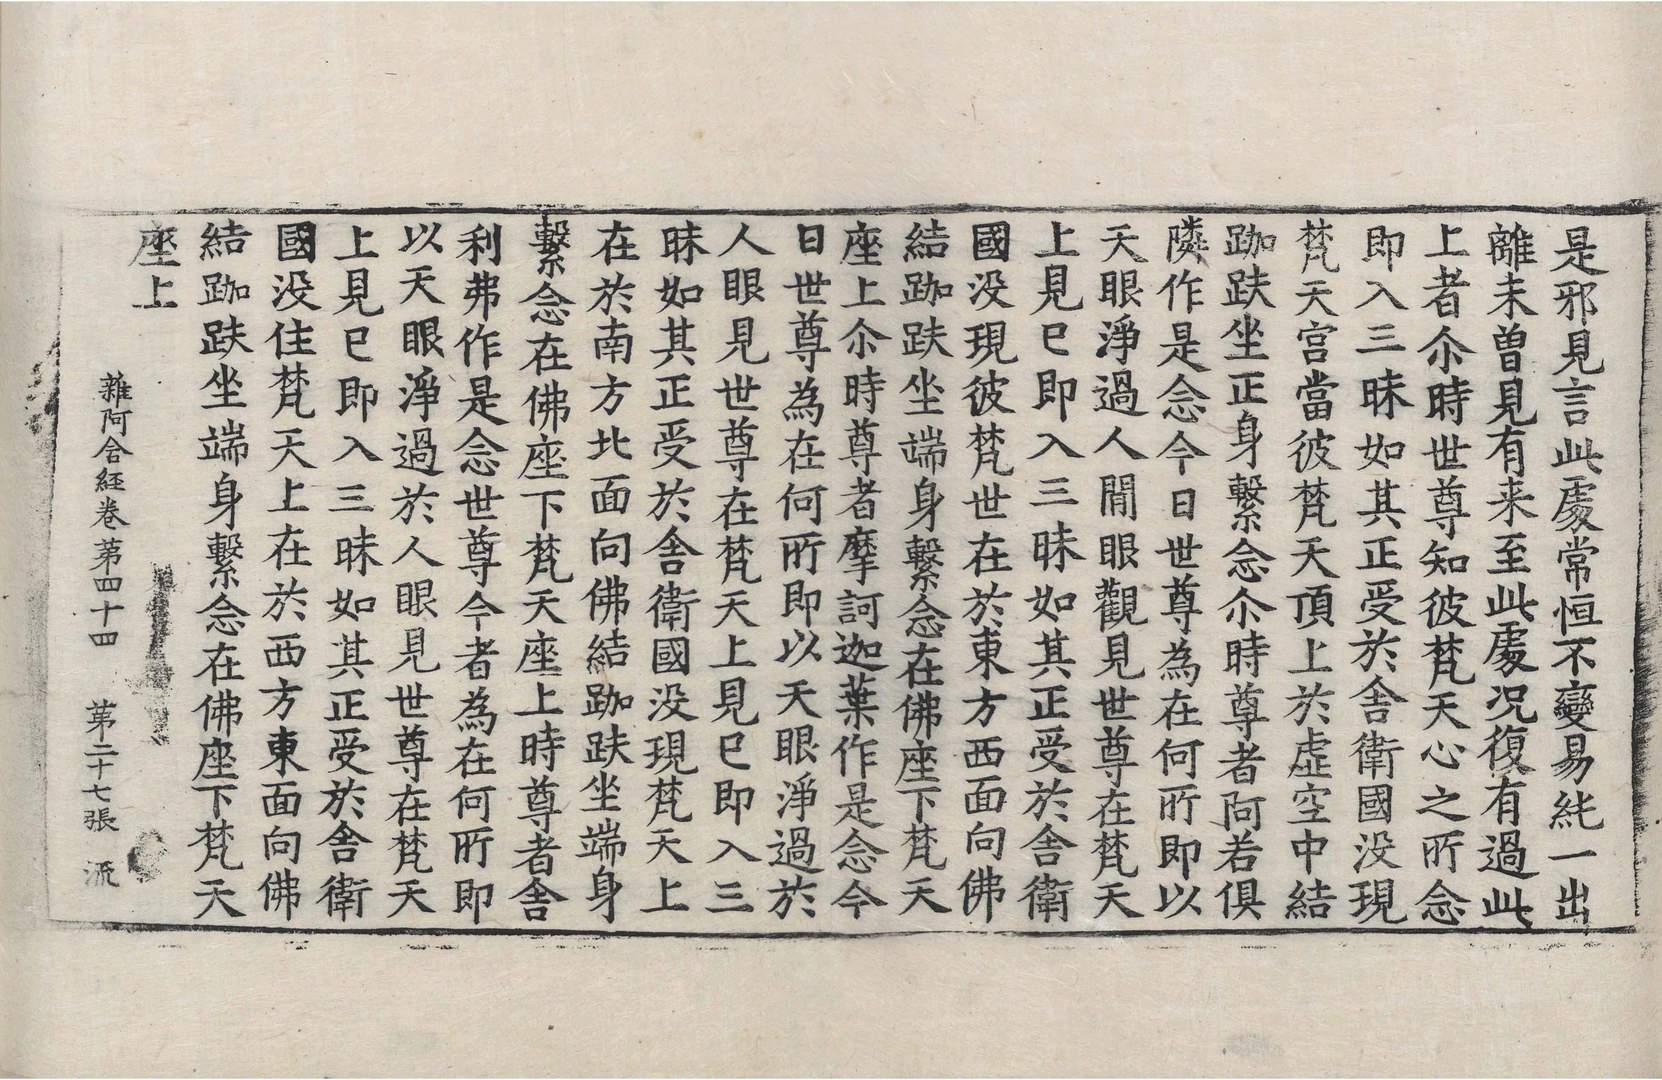 是邪見言此處常恒不變易純一出
離未曽見有来至此處况復有過此
上者尒時世尊知彼梵天心之所念
即入三昧如其正受於舍衛國没現
梵天宫當彼梵天頂上於虚空中結
跏趺坐正身繫念尒時尊者阿若俱
隣作是念今日世尊為在何所即以
天眼淨過人間眼觀見世尊在梵天
上見已即入三昧如其正受於舍衛
國没現彼梵世在於東方西面向佛
結跏趺坐端身繫念在佛座下梵天
座上尒時尊者摩訶迦葉作是念今
日世尊為在何所即以天眼淨過於
人眼見世尊在梵天上見已即入三
昧如其正受於舍衛國没現梵天上
在於南方北面向佛結跏趺坐端身
繫念在佛座下梵天座上時尊者舍
利弗作是念世尊今者為在何所即
以天眼淨過於人眼見世尊在梵天
上見已即入三昧如其正受於舍衛
國没住梵天上在於西方東面向佛
結跏趺坐端身繫念在佛座下梵天
座上
雜阿含経卷苐四十四 苐二十七張 流